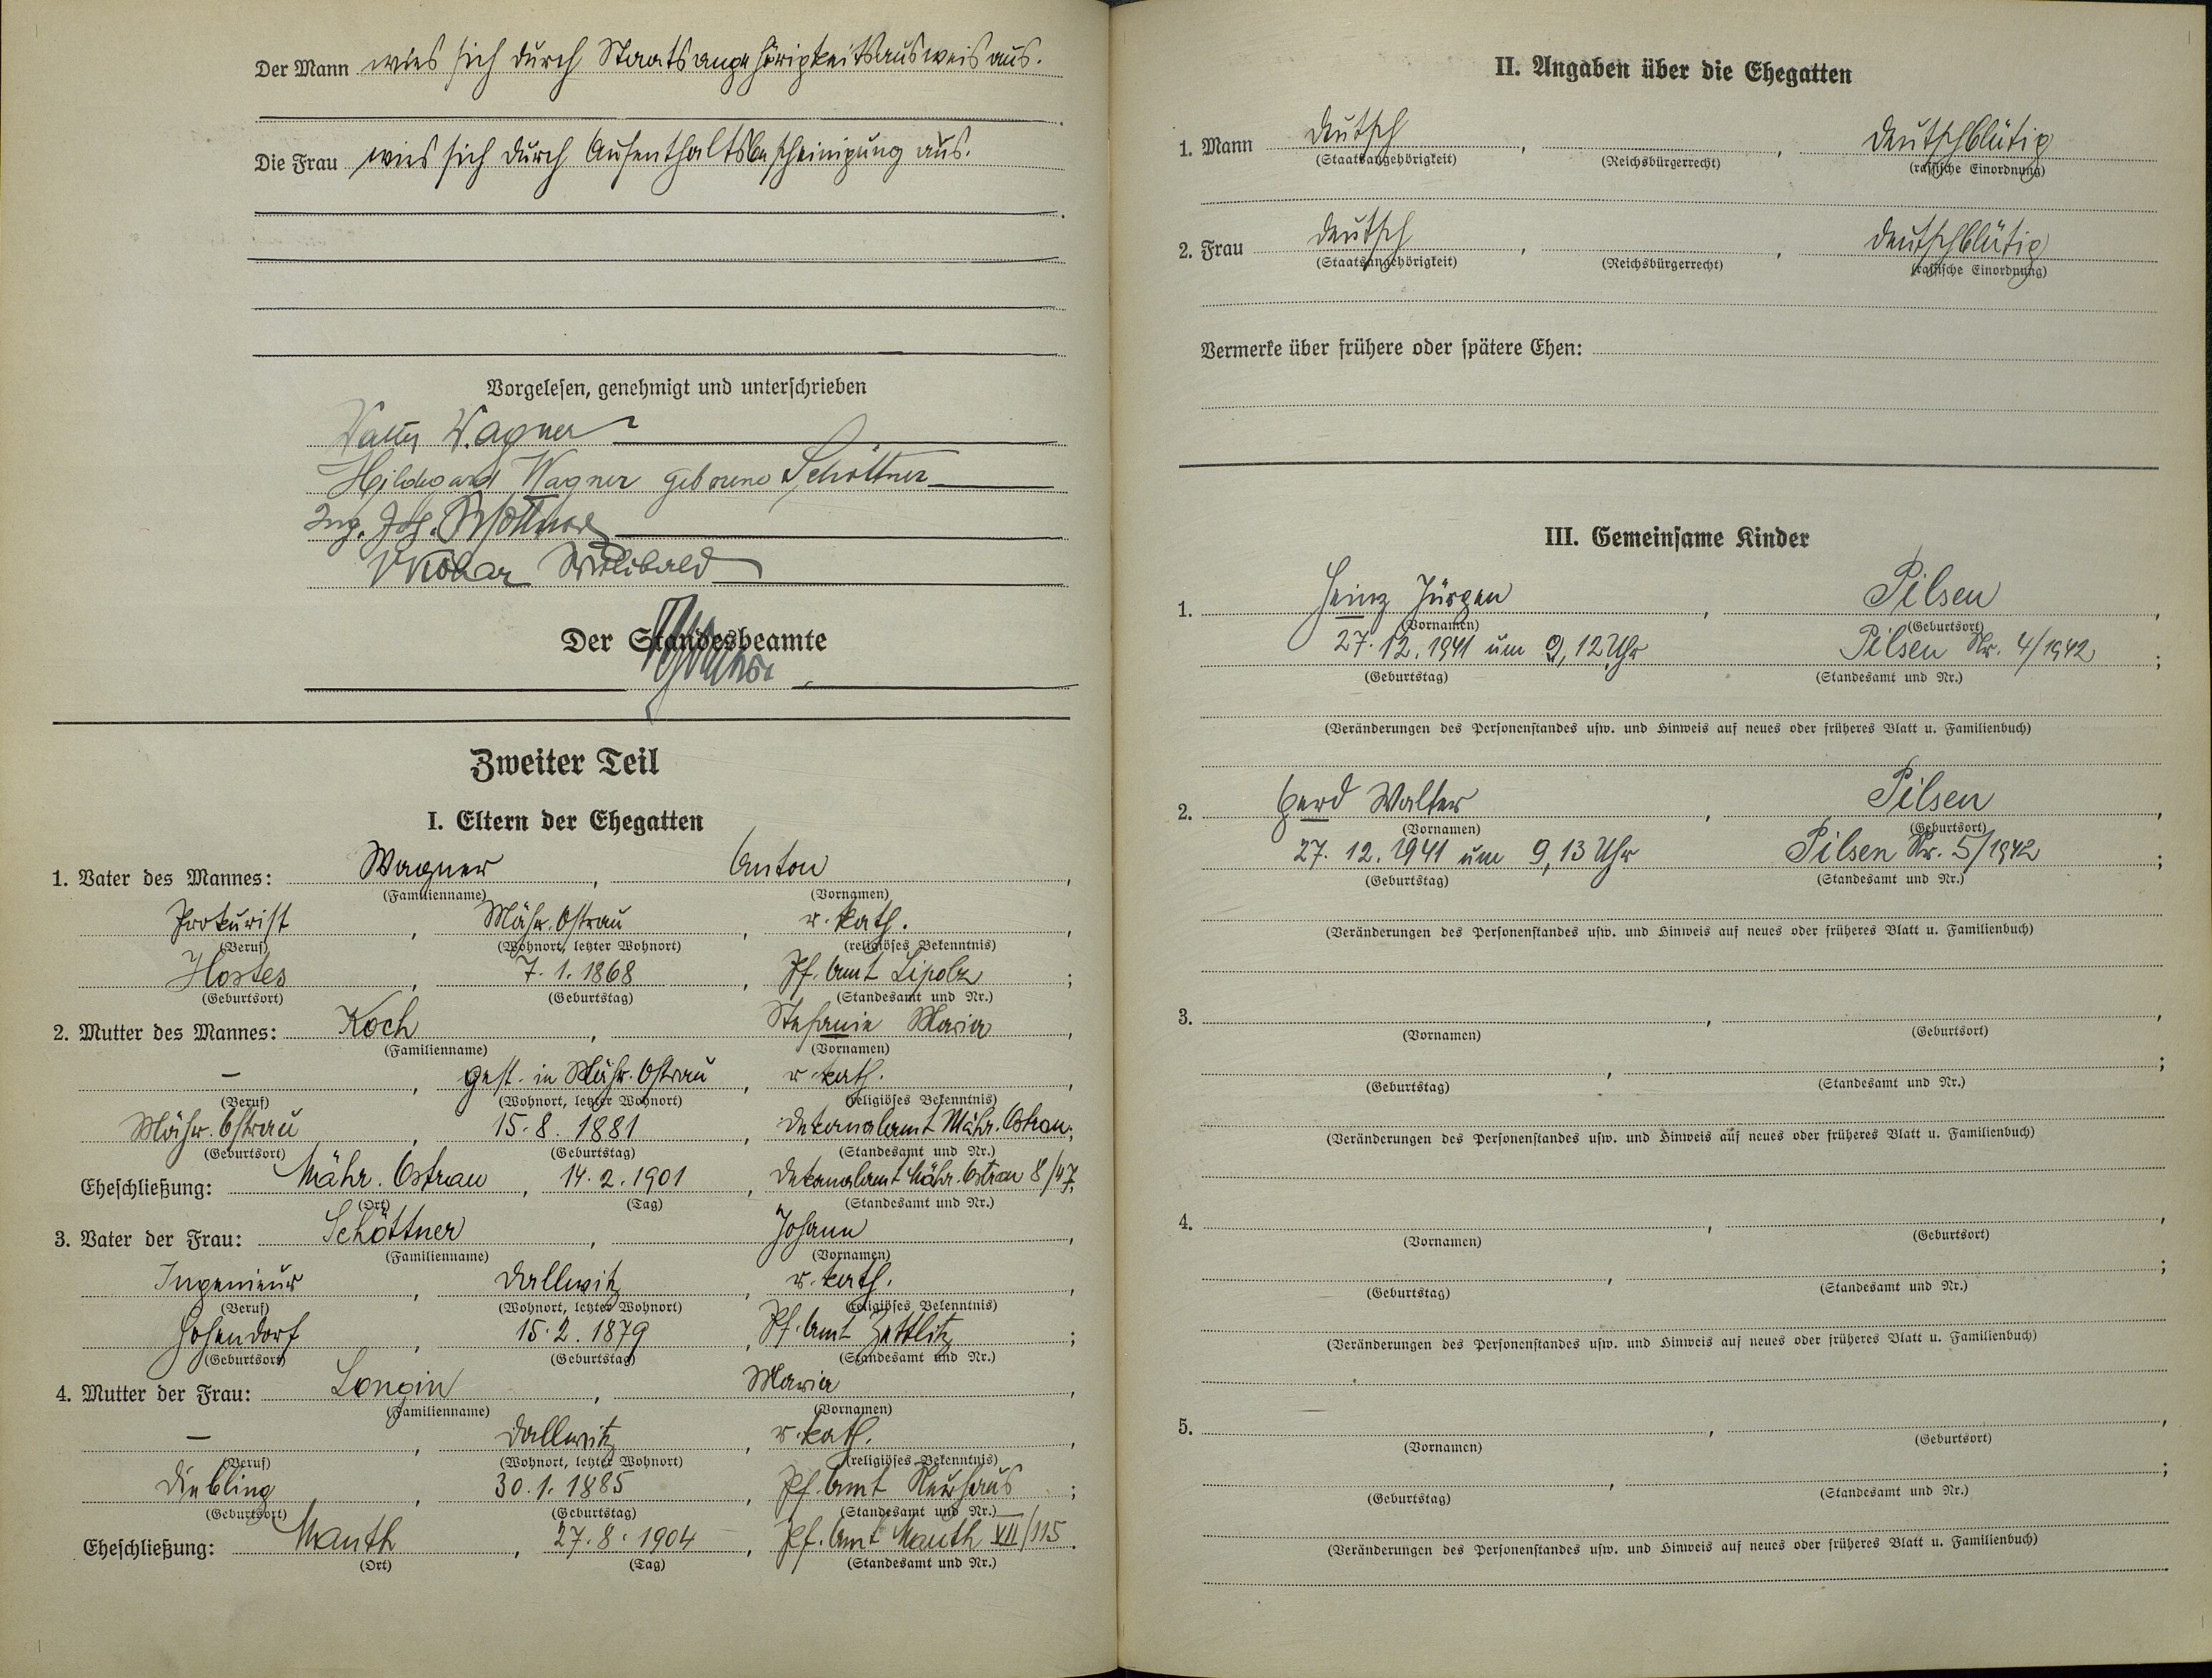 Der Mann wies sich durch Staatsangehörigkeitsausweis aus.
Die Frau wies sich durch Aufenthaltsbescheinigung aus.
Vorgelesen, genehmigt und unterschrieben
Walter Wagner
Hildegard Wagner geborene Schöttner
Ing. Joh. Schöttner
Willibald
Der Standesbeamte
Zweiter Teil
I. Eltern der Ehegatten
1. Vater des Mannes: Wagner, Anton,
(Familienname) (Vornamen)
Prokurist, Mähr. Ostrau, r. kath.,
(Beruf) (Wohnort, letzter Wohnort) (religiöses Bekenntnis)
Hostes, 7. 1. 1868, Pf. Amt Lipolz;
(Geburtsort) (Geburtstag) (Standesamt und Nr.)
2. Mutter des Mannes: Koch, Stefanie Maria,
(Familienname) (Vornamen)
–, gest. in Mähr. Ostrau, r. kath.,
(Beruf) (Wohnort, letzter Wohnort) (religiöses Bekenntnis)
Mähr. Ostrau, 15. 8. 1881, Dekanalamt Mähr. Ostrau;
(Geburtsort) (Geburtstag) (Standesamt und Nr.)
Eheschließung: Mähr. Ostrau, 14. 2. 1901, Dekanalamt Mähr. Ostrau 8/47.
(Ort) (Tag) (Standesamt und Nr.)
3. Vater der Frau: Schöttner, Johann,
(Familienname) (Vornamen)
Ingenieur, Dallwitz, r. kath.,
(Beruf) (Wohnort, letzter Wohnort) (religiöses Bekenntnis)
Hohendorf, 15. 2. 1879, Pf. Amt Zettlitz;
(Geburtsort) (Geburtstag) (Standesamt und Nr.)
4. Mutter der Frau: Longin, Maria,
(Familienname) (Vornamen)
–, Dallwitz, r. kath.,
(Beruf) (Wohnort, letzter Wohnort) (religiöses Bekenntnis)
Diebling, 30. 1. 1885, Pf. Amt Neuhaus;
(Geburtsort) (Geburtstag) (Standesamt und Nr.)
Eheschließung: Mauth, 27. 8. 1904, Pf. Amt Mauth VII/115.
(Ort) (Tag) (Standesamt und Nr.)
II. Angaben über die Ehegatten
1. Mann deutsch, , deutschblütig
(Staatsangehörigkeit) (Reichsbürgerrecht) (rassische Einordnung)
2. Frau deutsch, , deutschblütig
(Staatsangehörigkeit) (Reichsbürgerrecht) (rassische Einordnung)
Vermerke über frühere oder spätere Ehen:
III. Gemeinsame Kinder
1. Heinz Jürgen, Pilsen,
(Vornamen) (Geburtsort)
27. 12. 1941 um 9,12 Uhr Pilsen Nr. 4/1942;
(Geburtstag) (Standesamt und Nr.)
(Veränderungen des Personenstandes usw. und Hinweis auf neues oder früheres Blatt u. Familienbuch)
2. Gerd Walter, Pilsen,
(Vornamen) (Geburtsort)
27. 12. 1941 um 9,13 Uhr Pilsen Nr. 5/1942;
(Geburtstag) (Standesamt und Nr.)
(Veränderungen des Personenstandes usw. und Hinweis auf neues oder früheres Blatt u. Familienbuch)
3. , ,
(Vornamen) (Geburtsort)
, ;
(Geburtstag) (Standesamt und Nr.)
(Veränderungen des Personenstandes usw. und Hinweis auf neues oder früheres Blatt u. Familienbuch)
4. , ,
(Vornamen) (Geburtsort)
, ;
(Geburtstag) (Standesamt und Nr.)
(Veränderungen des Personenstandes usw. und Hinweis auf neues oder früheres Blatt u. Familienbuch)
5. , ,
(Vornamen) (Geburtsort)
, ;
(Geburtstag) (Standesamt und Nr.)
(Veränderungen des Personenstandes usw. und Hinweis auf neues oder früheres Blatt u. Familienbuch)